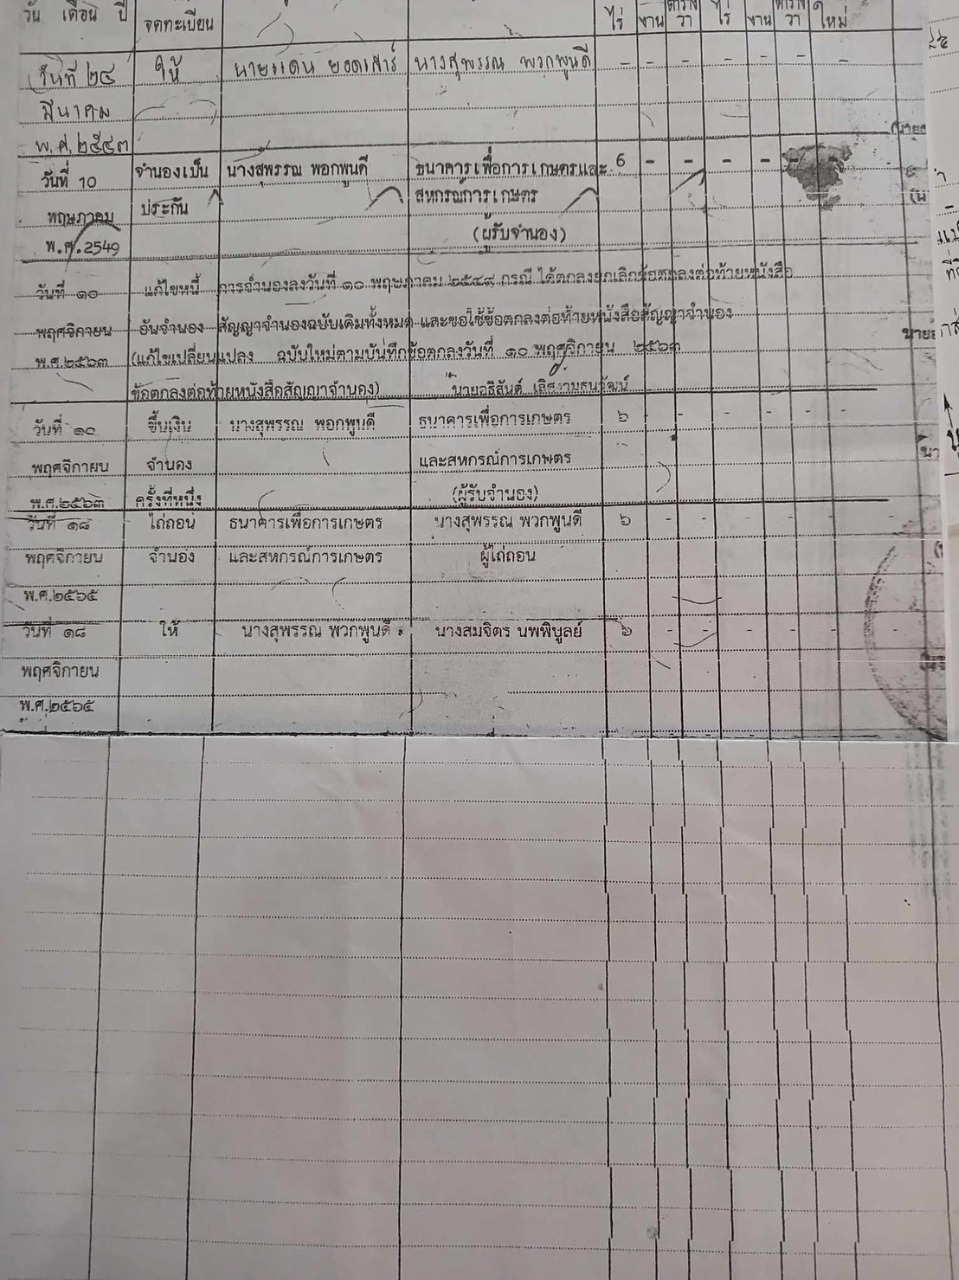 วัน เดือน ปี จดทะเบียน ไร่ งาน ตาราง วา ไร่ งาน ตาราง วา ใหม่
วันที่ ๒๔ ให้ นายแดน ยอดเสาร์ นางสุพรรณ พวกพูนดี - - - - - - -
มีนาคม
พ.ศ. ๒๕๔๓
วันที่ 10 จำนองเป็น นางสุพรรณ พอกพูนดี ธนาคารเพื่อการเกษตรและ 6 - - - - -
ประกัน สหกรณ์การเกษตร
พฤษภาคม
พ.ศ.2549 (ผู้รับจำนอง)
วันที่ ๑๐ แก้ไขหนี้ การจำนองลงวันที่ ๑๐ พฤษภาคม ๒๕๔๙ กรณี ได้ตกลงยกเลิกข้อตกลงต่อท้ายหนังสือ
พฤศจิกายน อันจำนอง สัญญาจำนองฉบับเดิมทั้งหมด และขอใช้ข้อตกลงต่อท้ายหนังสือสัญญาจำนอง
พ.ศ.๒๕๖๓ (แก้ไขเปลี่ยนแปลง ฉบับใหม่ตามบันทึกข้อตกลงวันที่ ๑๐ พฤศจิกายน ๒๕๖๓
ข้อตกลงต่อท้ายหนังสือสัญญาจำนอง)
วันที่ ๑๐ ขึ้นเงิน นางสุพรรณ พอกพูนดี ธนาคารเพื่อการเกษตร ๖ - - - - - -
พฤศจิกายน จำนอง และสหกรณ์การเกษตร
พ.ศ.๒๕๖๓ ครั้งที่หนึ่ง (ผู้รับจำนอง)
วันที่ ๑๘ ไถ่ถอน ธนาคารเพื่อการเกษตร นางสุพรรณ พวกพูนดี ๖ - - - - - -
พฤศจิกายน จำนอง และสหกรณ์การเกษตร ผู้ไถ่ถอน
พ.ศ.๒๕๖๕
วันที่ ๑๘ ให้ นางสุพรรณ พวกพูนดี นางสมจิตร นพพิบูลย์ ๖ - - - - - -
พฤศจิกายน
พ.ศ.๒๕๖๕